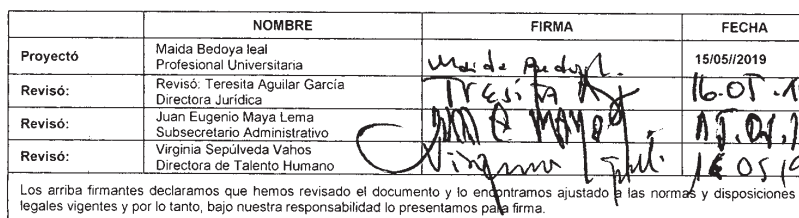 NOMBRE FIRMA FECHA
Proyectó Maida Bedoya leal
Profesional Universitaria Maida Bedoya L. 15/05//2019
Revisó: Revisó: Teresita Aguilar García
Directora Jurídica Teresita 16.05.1
Revisó: Juan Eugenio Maya Lema
Subsecretario Administrativo
Revisó: Virginia Sepúlveda Vahos
Directora de Talento Humano Virginia 16 05 19
Los arriba firmantes declaramos que hemos revisado el documento y lo encontramos ajustado a las normas y disposiciones
legales vigentes y por lo tanto, bajo nuestra responsabilidad lo presentamos para firma.